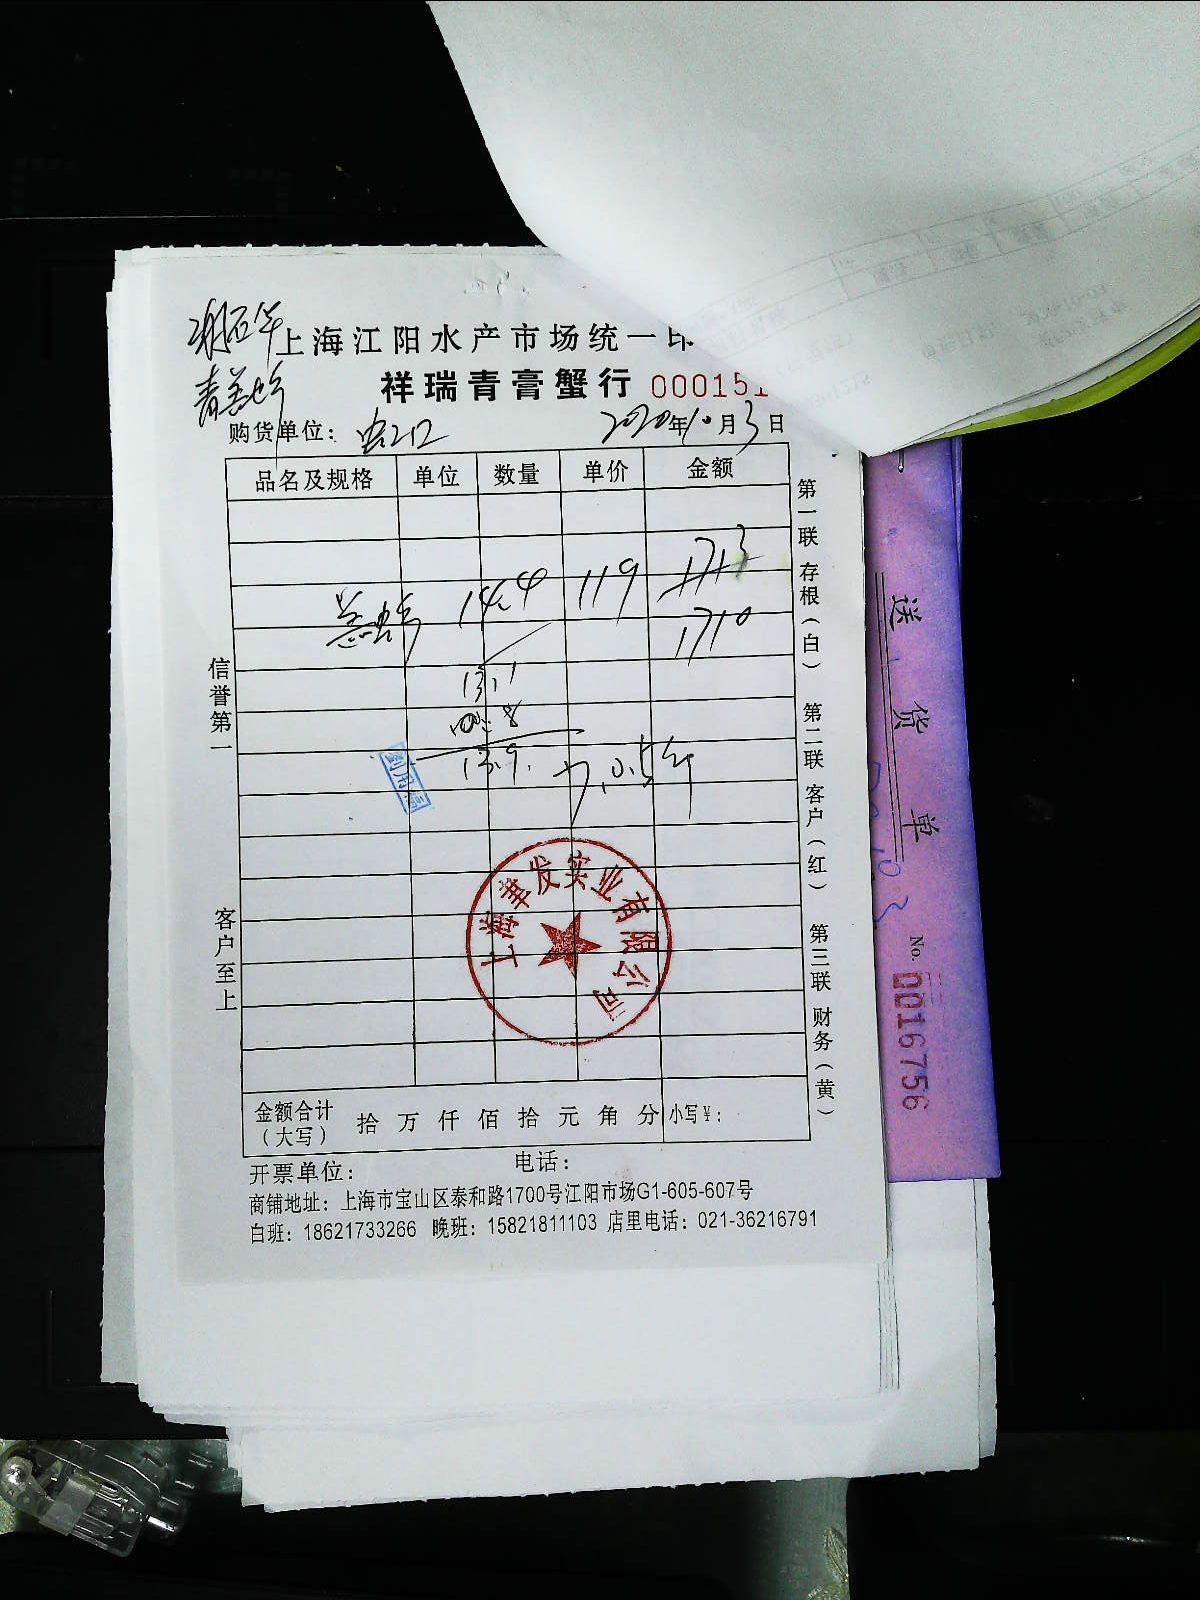 上海江阳水产市场统一印
祥瑞青膏蟹行 000151
购货单位：虹口 2020年10月3日
品名及规格 单位 数量 单价 金额
14.4 119 1713
1710
13.1
0.8
13.9. 0.5斤
信誉第一
客户至上
第一联存根（白） 第二联客户（红） 第三联财务（黄）
上海華发实业有限公司
金额合计（大写） 拾 万 仟 佰 拾 元 角 分 小写￥：
开票单位： 电话：
商铺地址：上海市宝山区泰和路1700号江阳市场G1-605-607号
白班：18621733266 晚班：15821811103 店里电话：021-36216791
送货单
No. 0016756